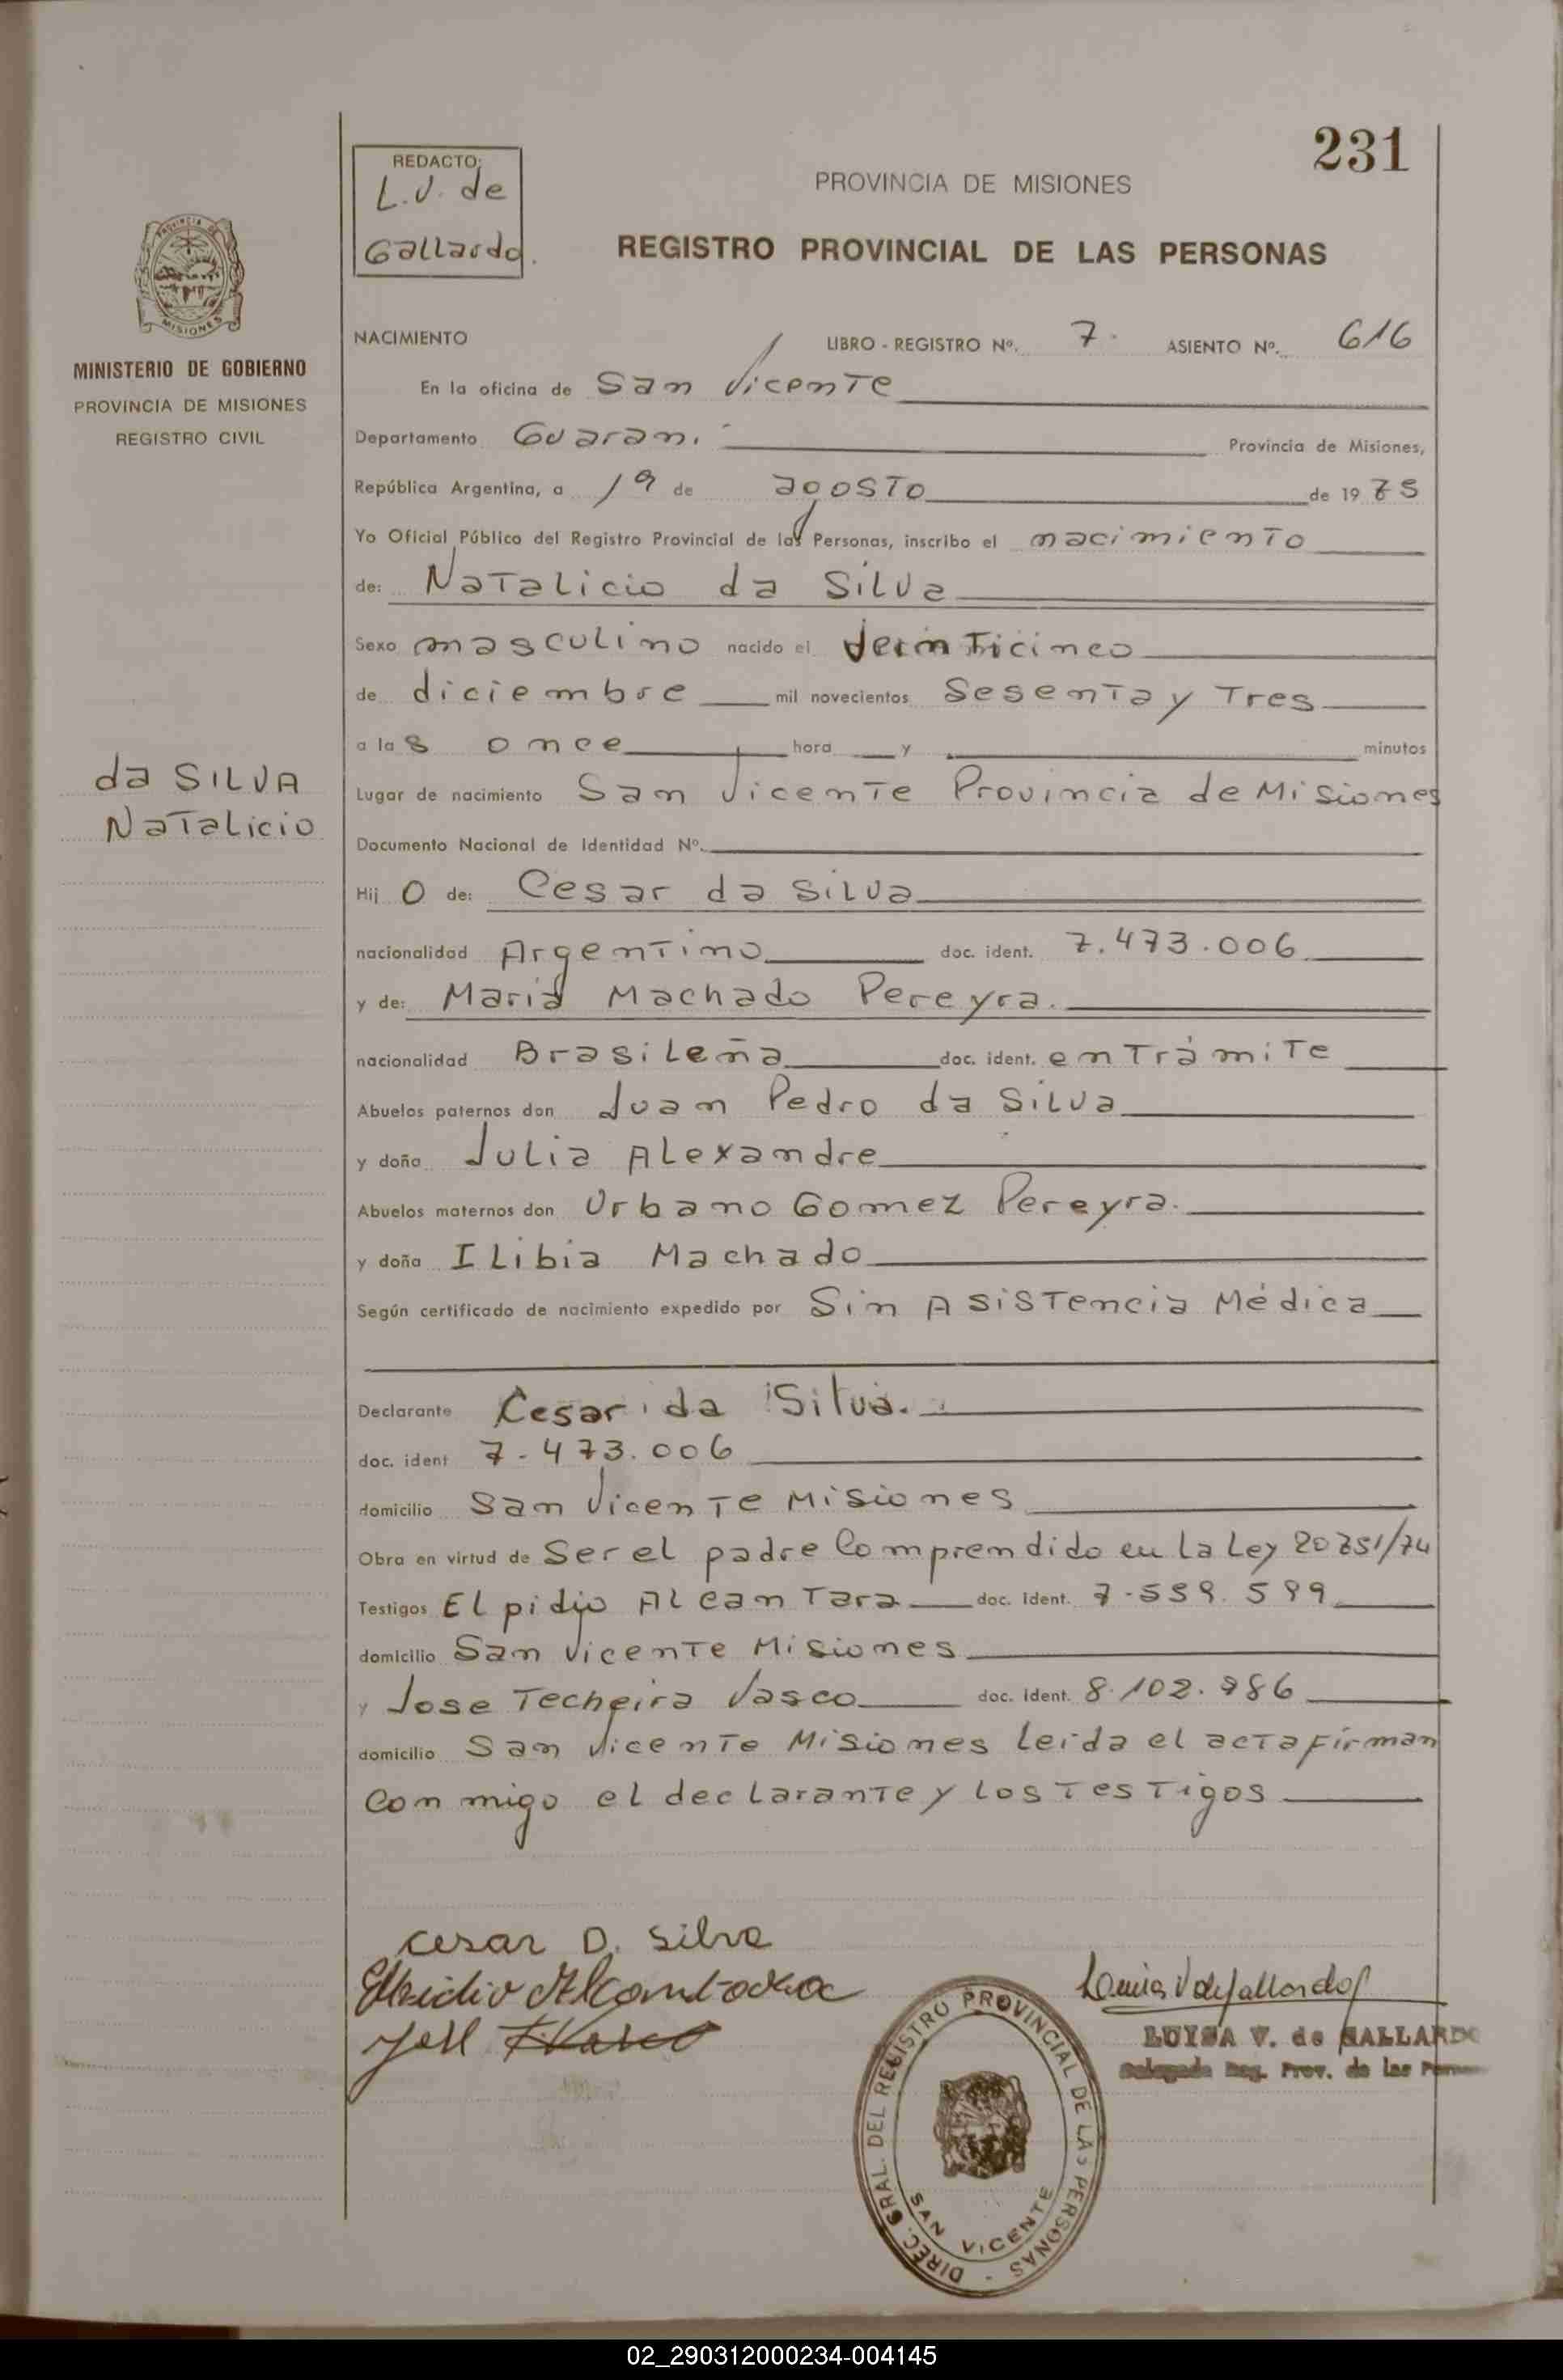 231
REDACTO:
L.V. de
Gallardo.
PROVINCIA DE MISIONES
REGISTRO PROVINCIAL DE LAS PERSONAS
PROVINCIA DE
MISIONES
MINISTERIO DE GOBIERNO
PROVINCIA DE MISIONES
REGISTRO CIVIL
NACIMIENTO LIBRO - REGISTRO Nº. 7. ASIENTO Nº. 616
En la oficina de San Vicente
Departamento Guaraní Provincia de Misiones,
República Argentina, a 1º de agosto de 1975
Yo Oficial Público del Registro Provincial de las Personas, inscribo el nacimiento
de: Natalicio da Silva
Sexo masculino nacido el veinticinco
de diciembre mil novecientos Sesenta y Tres
a las once hora y minutos
da SILVA
Natalicio
Lugar de nacimiento San Vicente Provincia de Misiones
Documento Nacional de Identidad Nº.
Hijo de: Cesar da Silva
nacionalidad Argentino doc. ident. 7.473.006
y de: Maria Machado Pereyra.
nacionalidad Brasileña doc. ident. en Trámite
Abuelos paternos don Juan Pedro da Silva
y doña Julia Alexandre
Abuelos maternos don Urbano Gomez Pereyra.
y doña ILibia Machado
Según certificado de nacimiento expedido por Sin Asistencia Médica
Declarante Cesar da Silva.
doc. ident 7.473.006
domicilio San Vicente Misiones
Obra en virtud de Ser el padre Comprendido en La Ley 20751/74
Testigos Elpidio Alcantara doc. ident. 7.559.599
domicilio San Vicente Misiones
y Jose Techeira Vasco doc. ident. 8.102.986
domicilio San Vicente Misiones Leida el acta firman
Conmigo el declarante y los Testigos
Cesar D. Silva
Elpidio Alcantara
Luisa V de Gallardo
LUISA V. de GALLARDO
Delegada Reg. Prov. de las Personas
DIREC. GRAL. DEL REGISTRO PROVINCIAL DE LAS PERSONAS -
SAN VICENTE
02_290312000234-004145